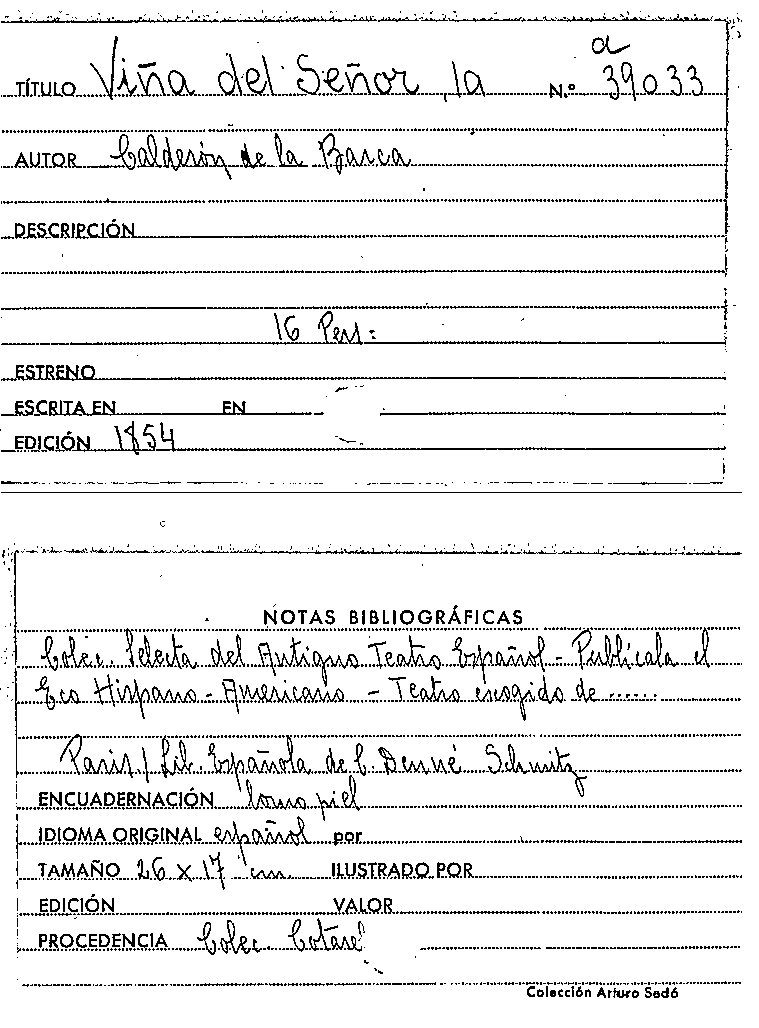 a
TÍTULO Viña del Señor, la N.º 39033
AUTOR Calderón de la Barca
DESCRIPCIÓN
16 Pers:
ESTRENO
ESCRITA EN EN
EDICIÓN 1854
NOTAS BIBLIOGRÁFICAS
Colec. Selecta del Antiguo Teatro Español - Publícala el
Eco Hispano-Americano - Teatro escogido de ......
Paris / Lib. Española de C. Denné Schmitz
ENCUADERNACIÓN lomo piel
IDIOMA ORIGINAL español por
TAMAÑO 26 x 17 cm. ILUSTRADO POR
EDICIÓN VALOR
PROCEDENCIA Colec. Cotarel
Colección Arturo Sedó